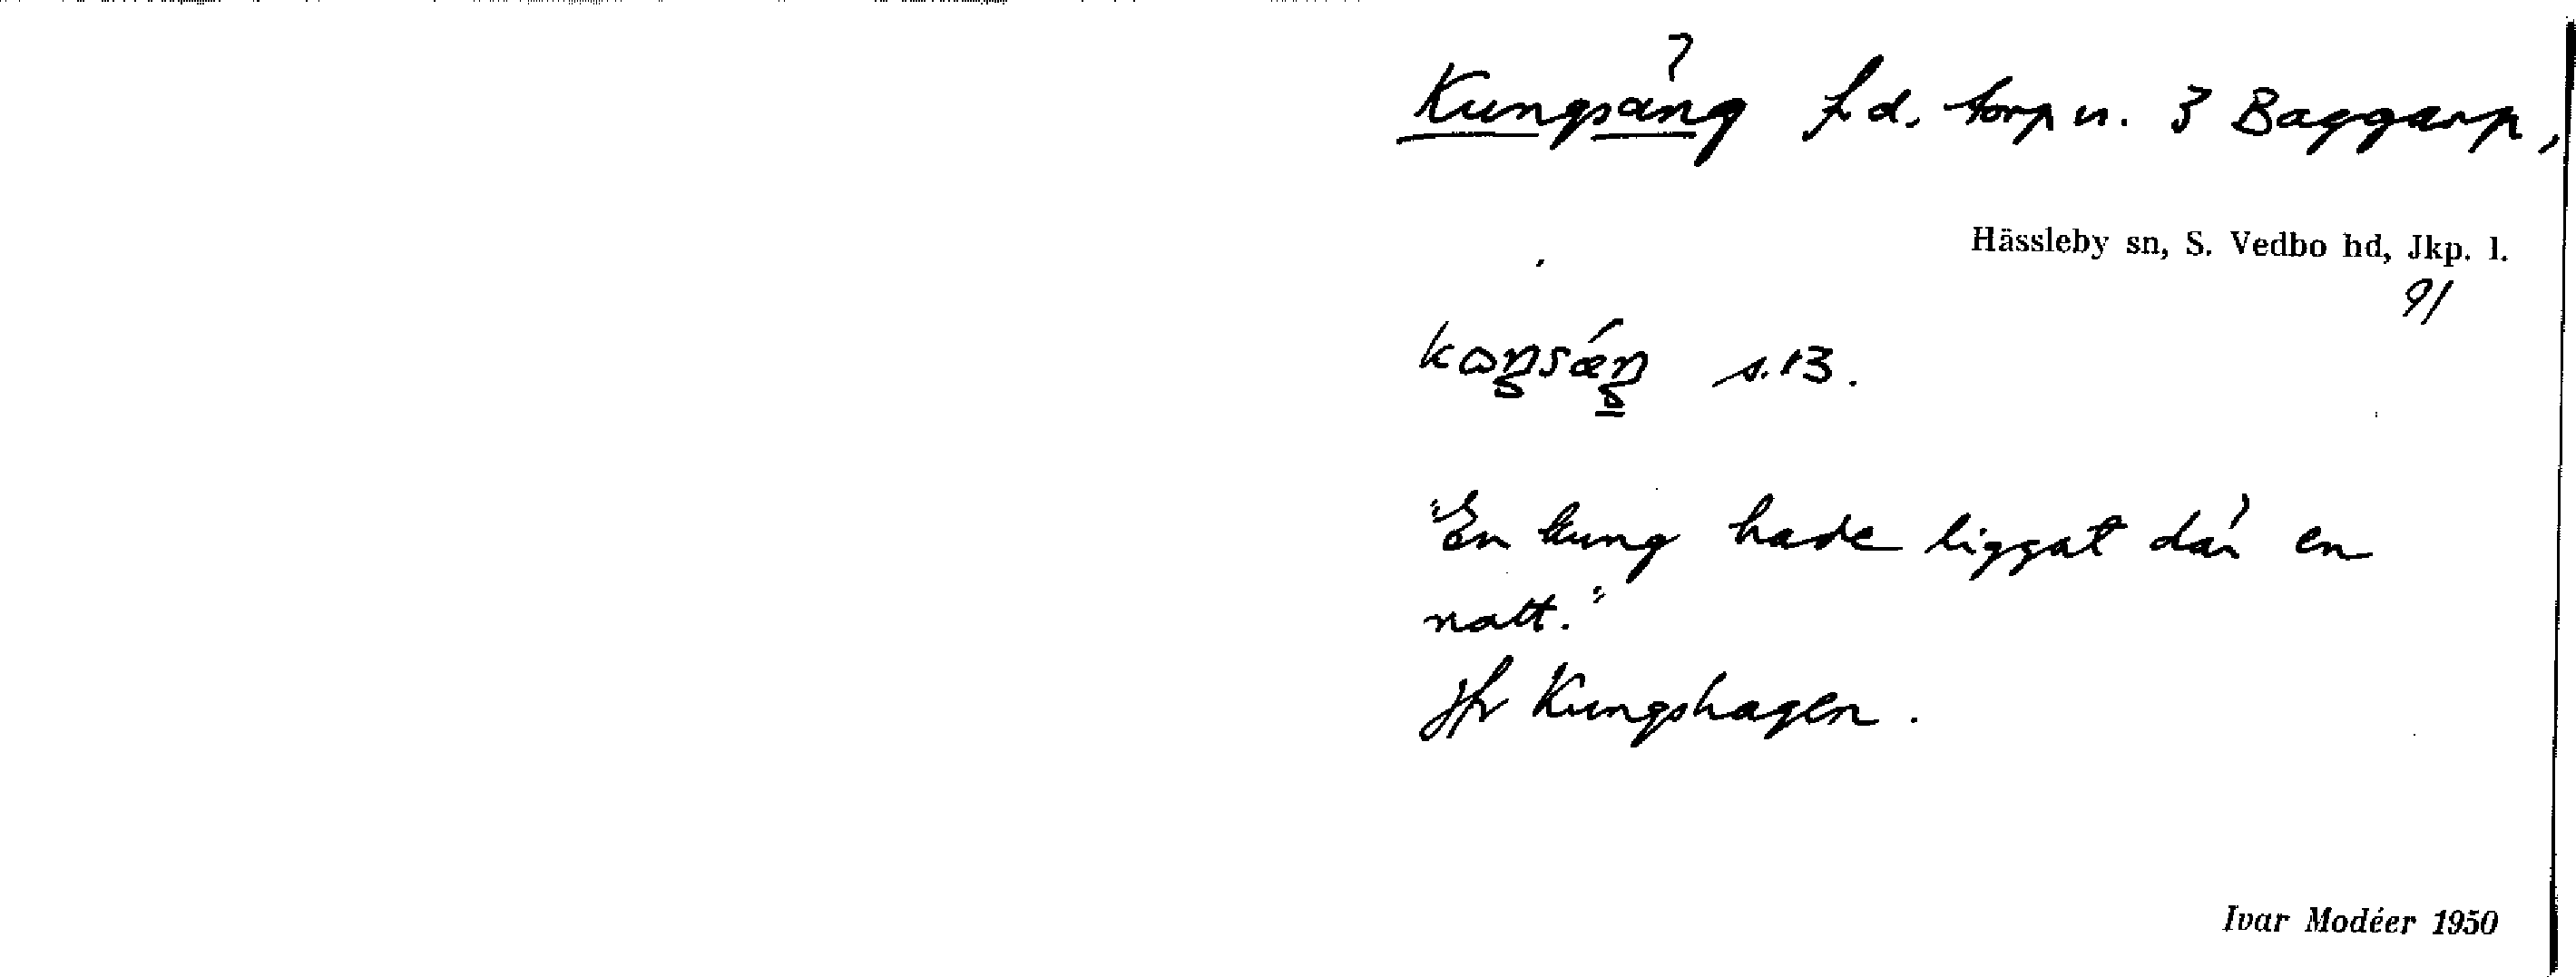 Kungsäng f.d. torp u. 3 Baggarp,
Hässleby sn, S. Vedbo hd, Jkp. l.
91
kɷŋsǽŋ s. 13.
"En kung hade liggat där en
natt."
Jfr Kungshagen.
Ivar Modéer 1950